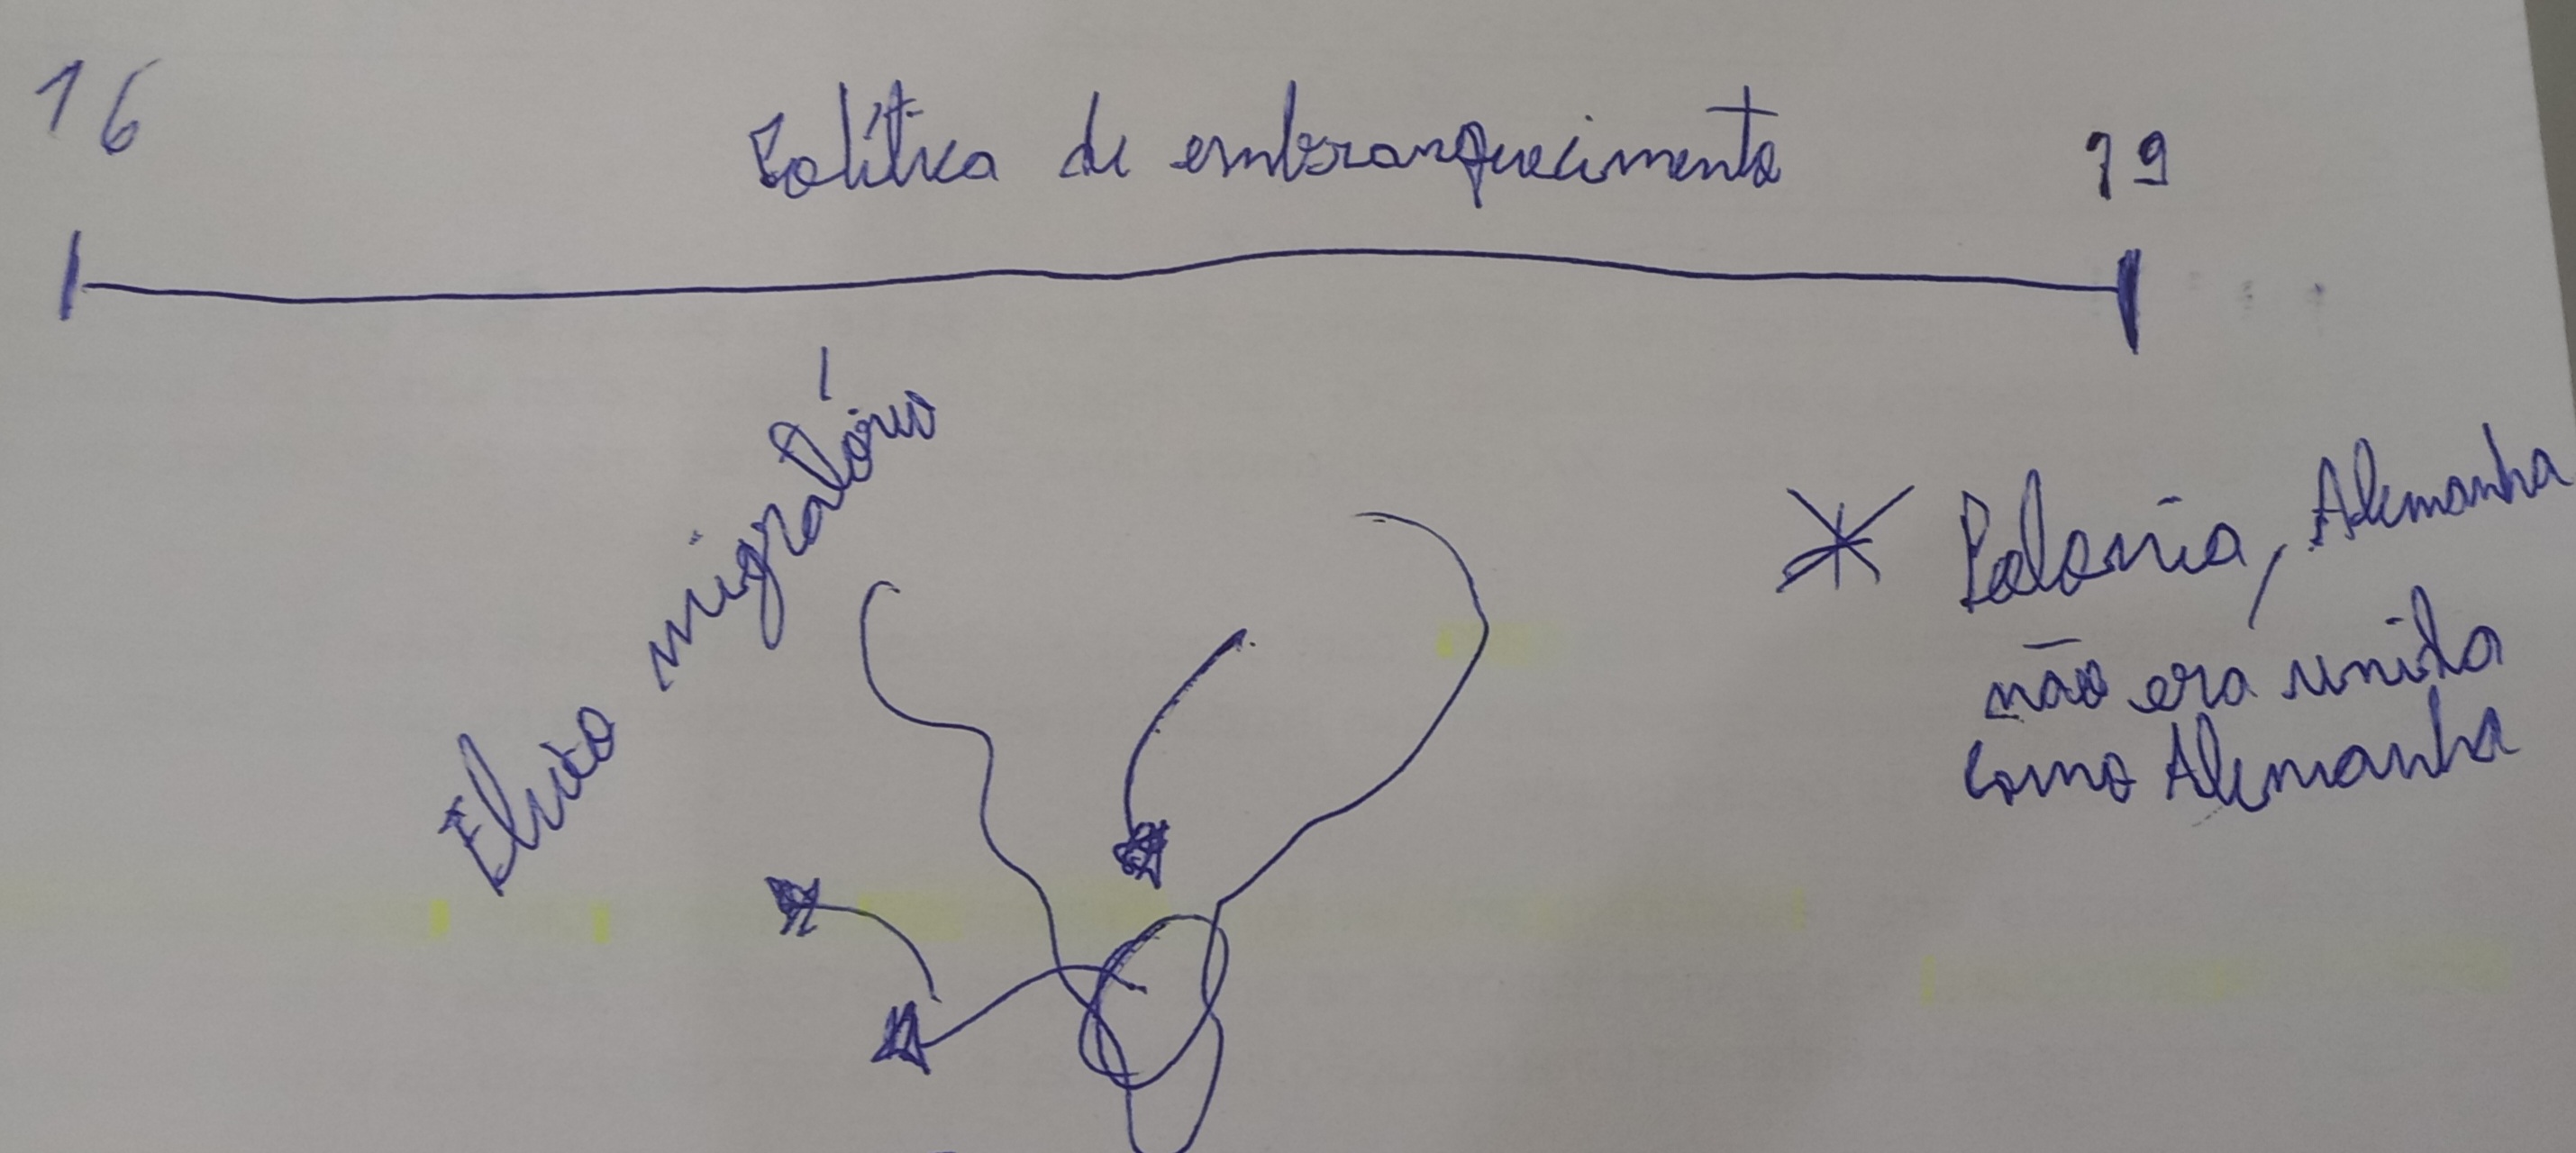 16
Política de embranquecimento
19
migratório
* Polônia, Alemanha
não era unida
como Alemanha